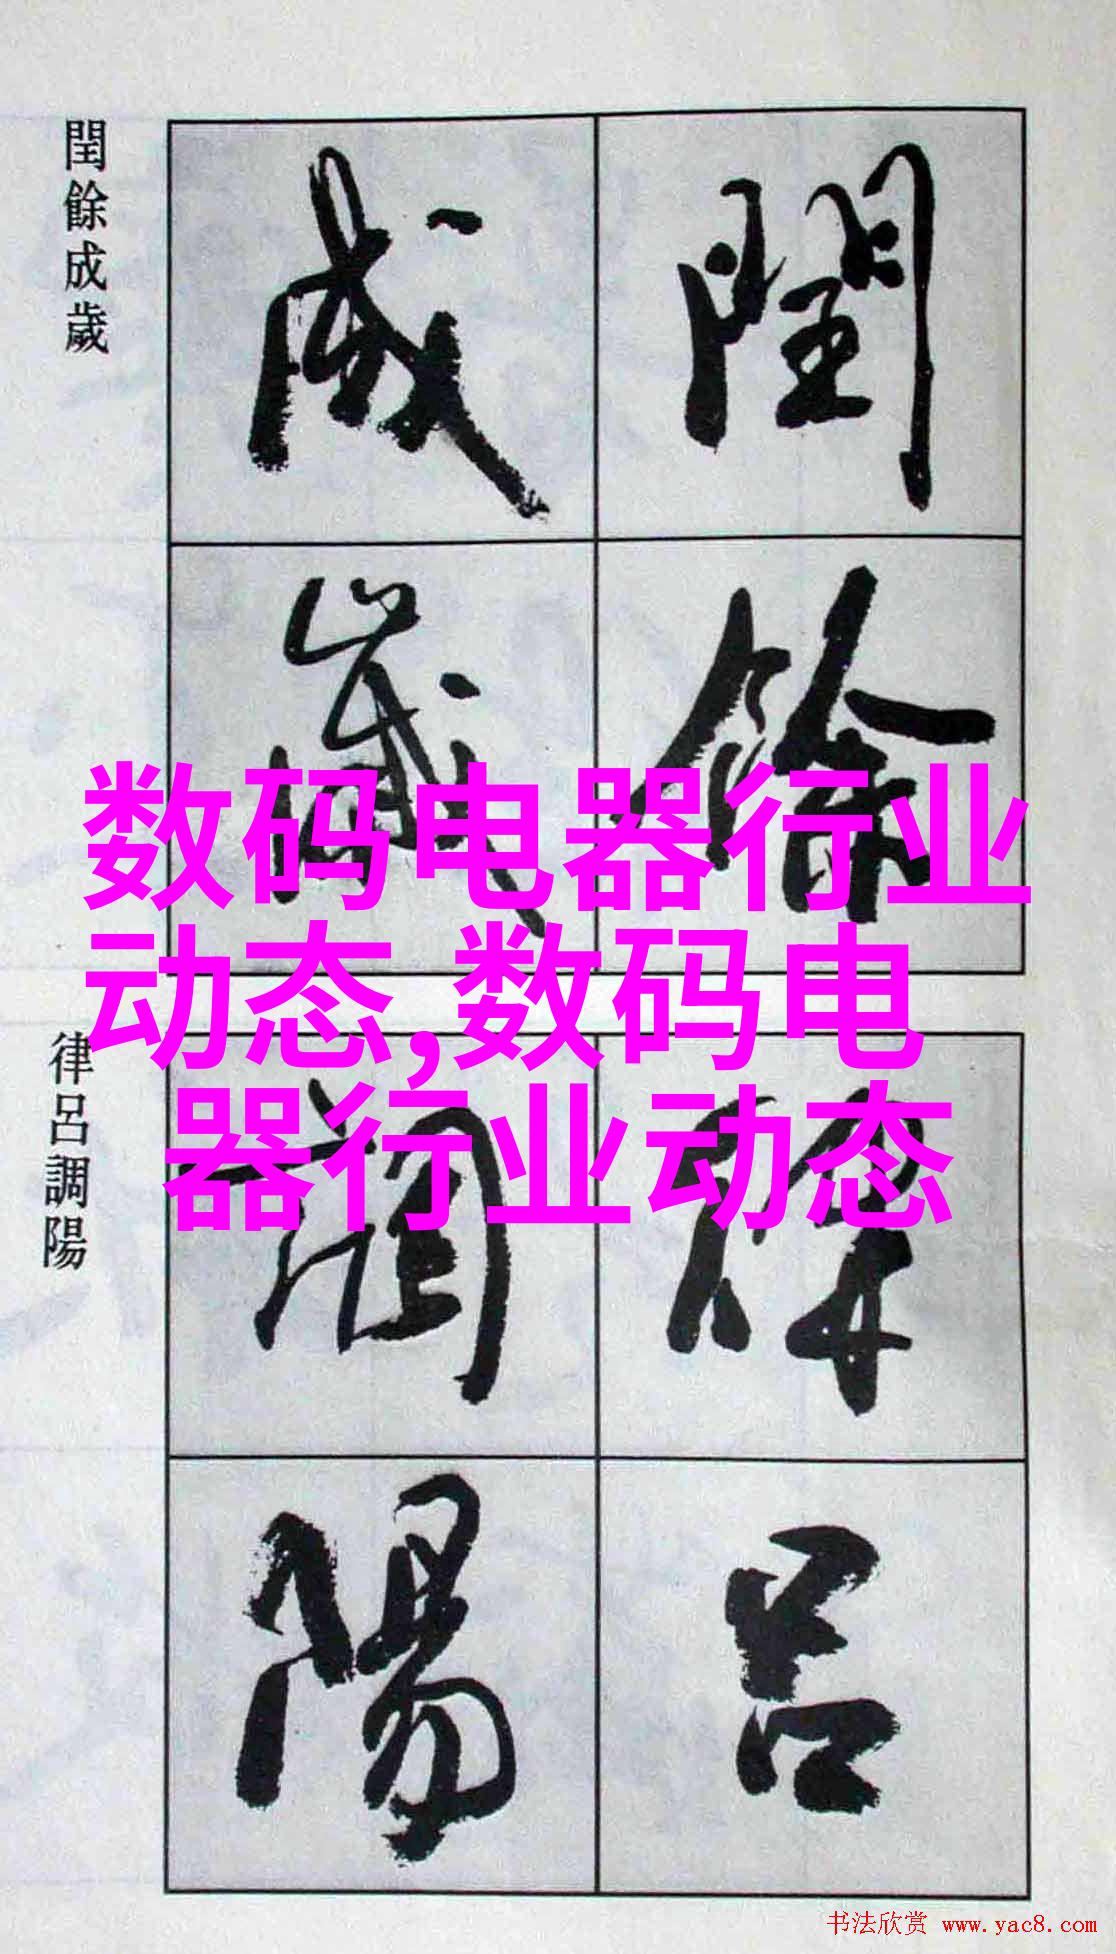 閏餘成歲
閏餘
成歲
数码电器行业
动态,数码电
器行业动态
律呂調陽
律呂
調陽
书法欣赏 www.yac8.com